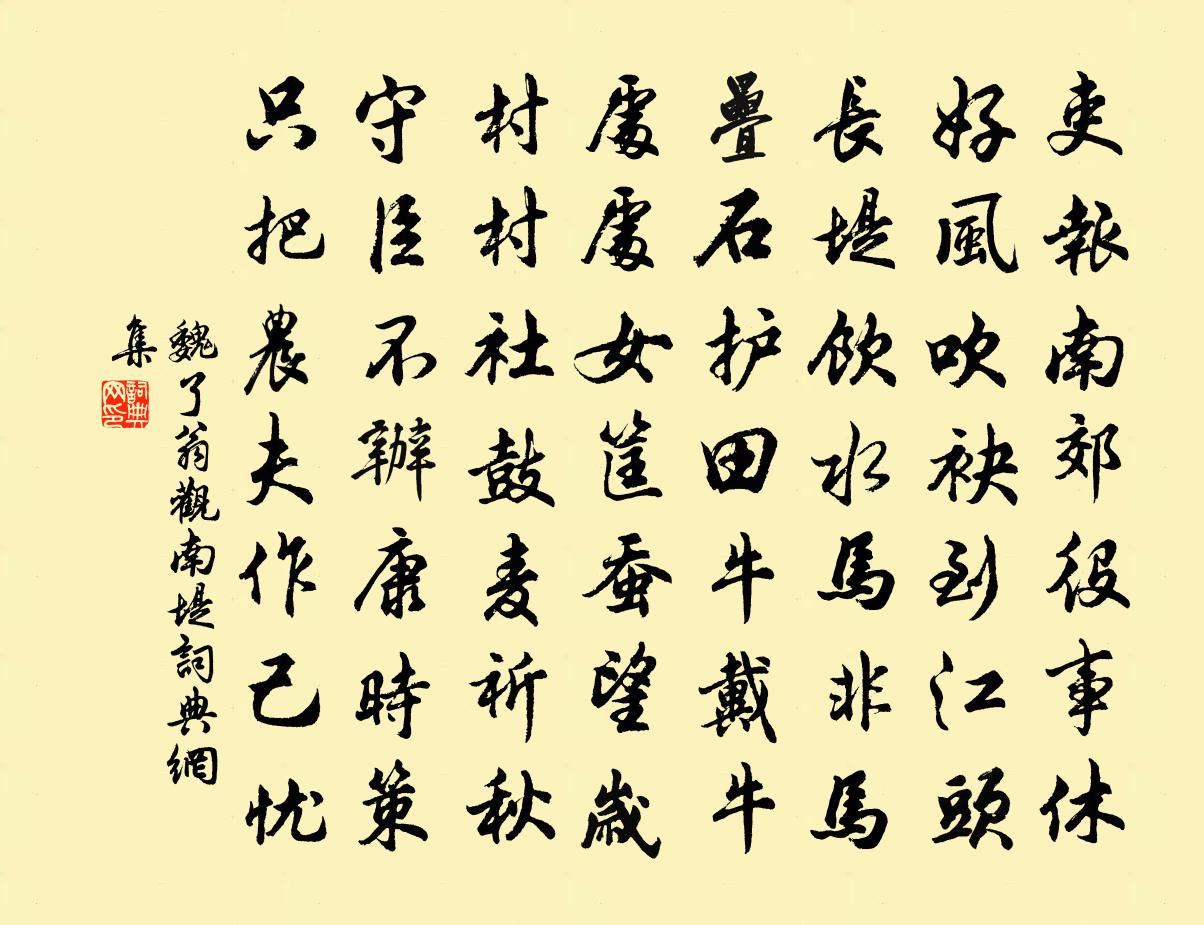 吏報南郊役事休
好風吹袂到江頭
長堤飲水馬非馬
疊石护田牛戴牛
處處女筐蚕望歲
村村社鼓麦祈秋
守臣不辦康時策
只把農夫作己忧
魏了翁觀南堤詞典網
集
詞典網印